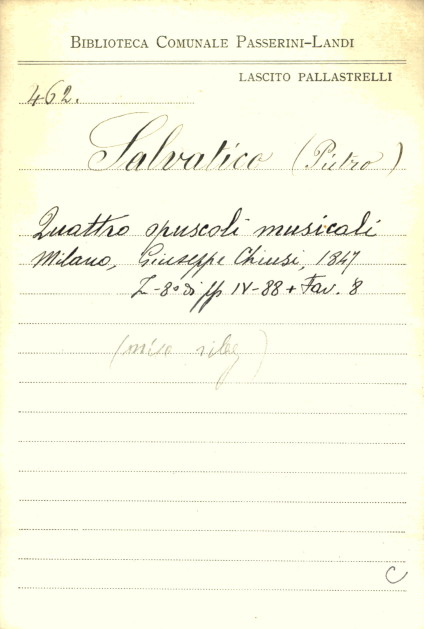 BIBLIOTECA COMUNALE PASSERINI-LANDI
LASCITO PALLASTRELLI
462.
Salvatico (Pietro)
Quattro opuscoli musicali
Milano, Giuseppe Chiusi, 1847
8° di pp IV-88 + Tav. 8
(misc rileg)
C